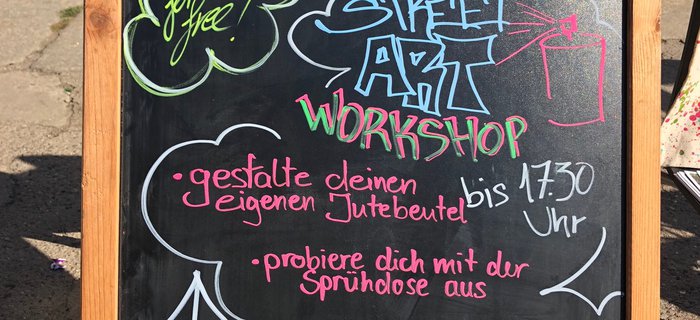 for free!
STREET
ART
WORKSHOP
• gestalte deinen
eigenen Jutebeutel
bis 17.30
Uhr
• probiere dich mit der
Sprühdose aus